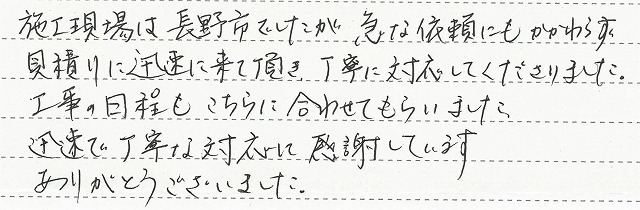 施工現場は長野市でしたが急な依頼にもかかわらず
見積りに迅速に来て頂き丁寧に対応してくださりました。
工事の日程もこちらに合わせてもらいました
迅速で丁寧な対応に感謝しています
ありがとうございました。